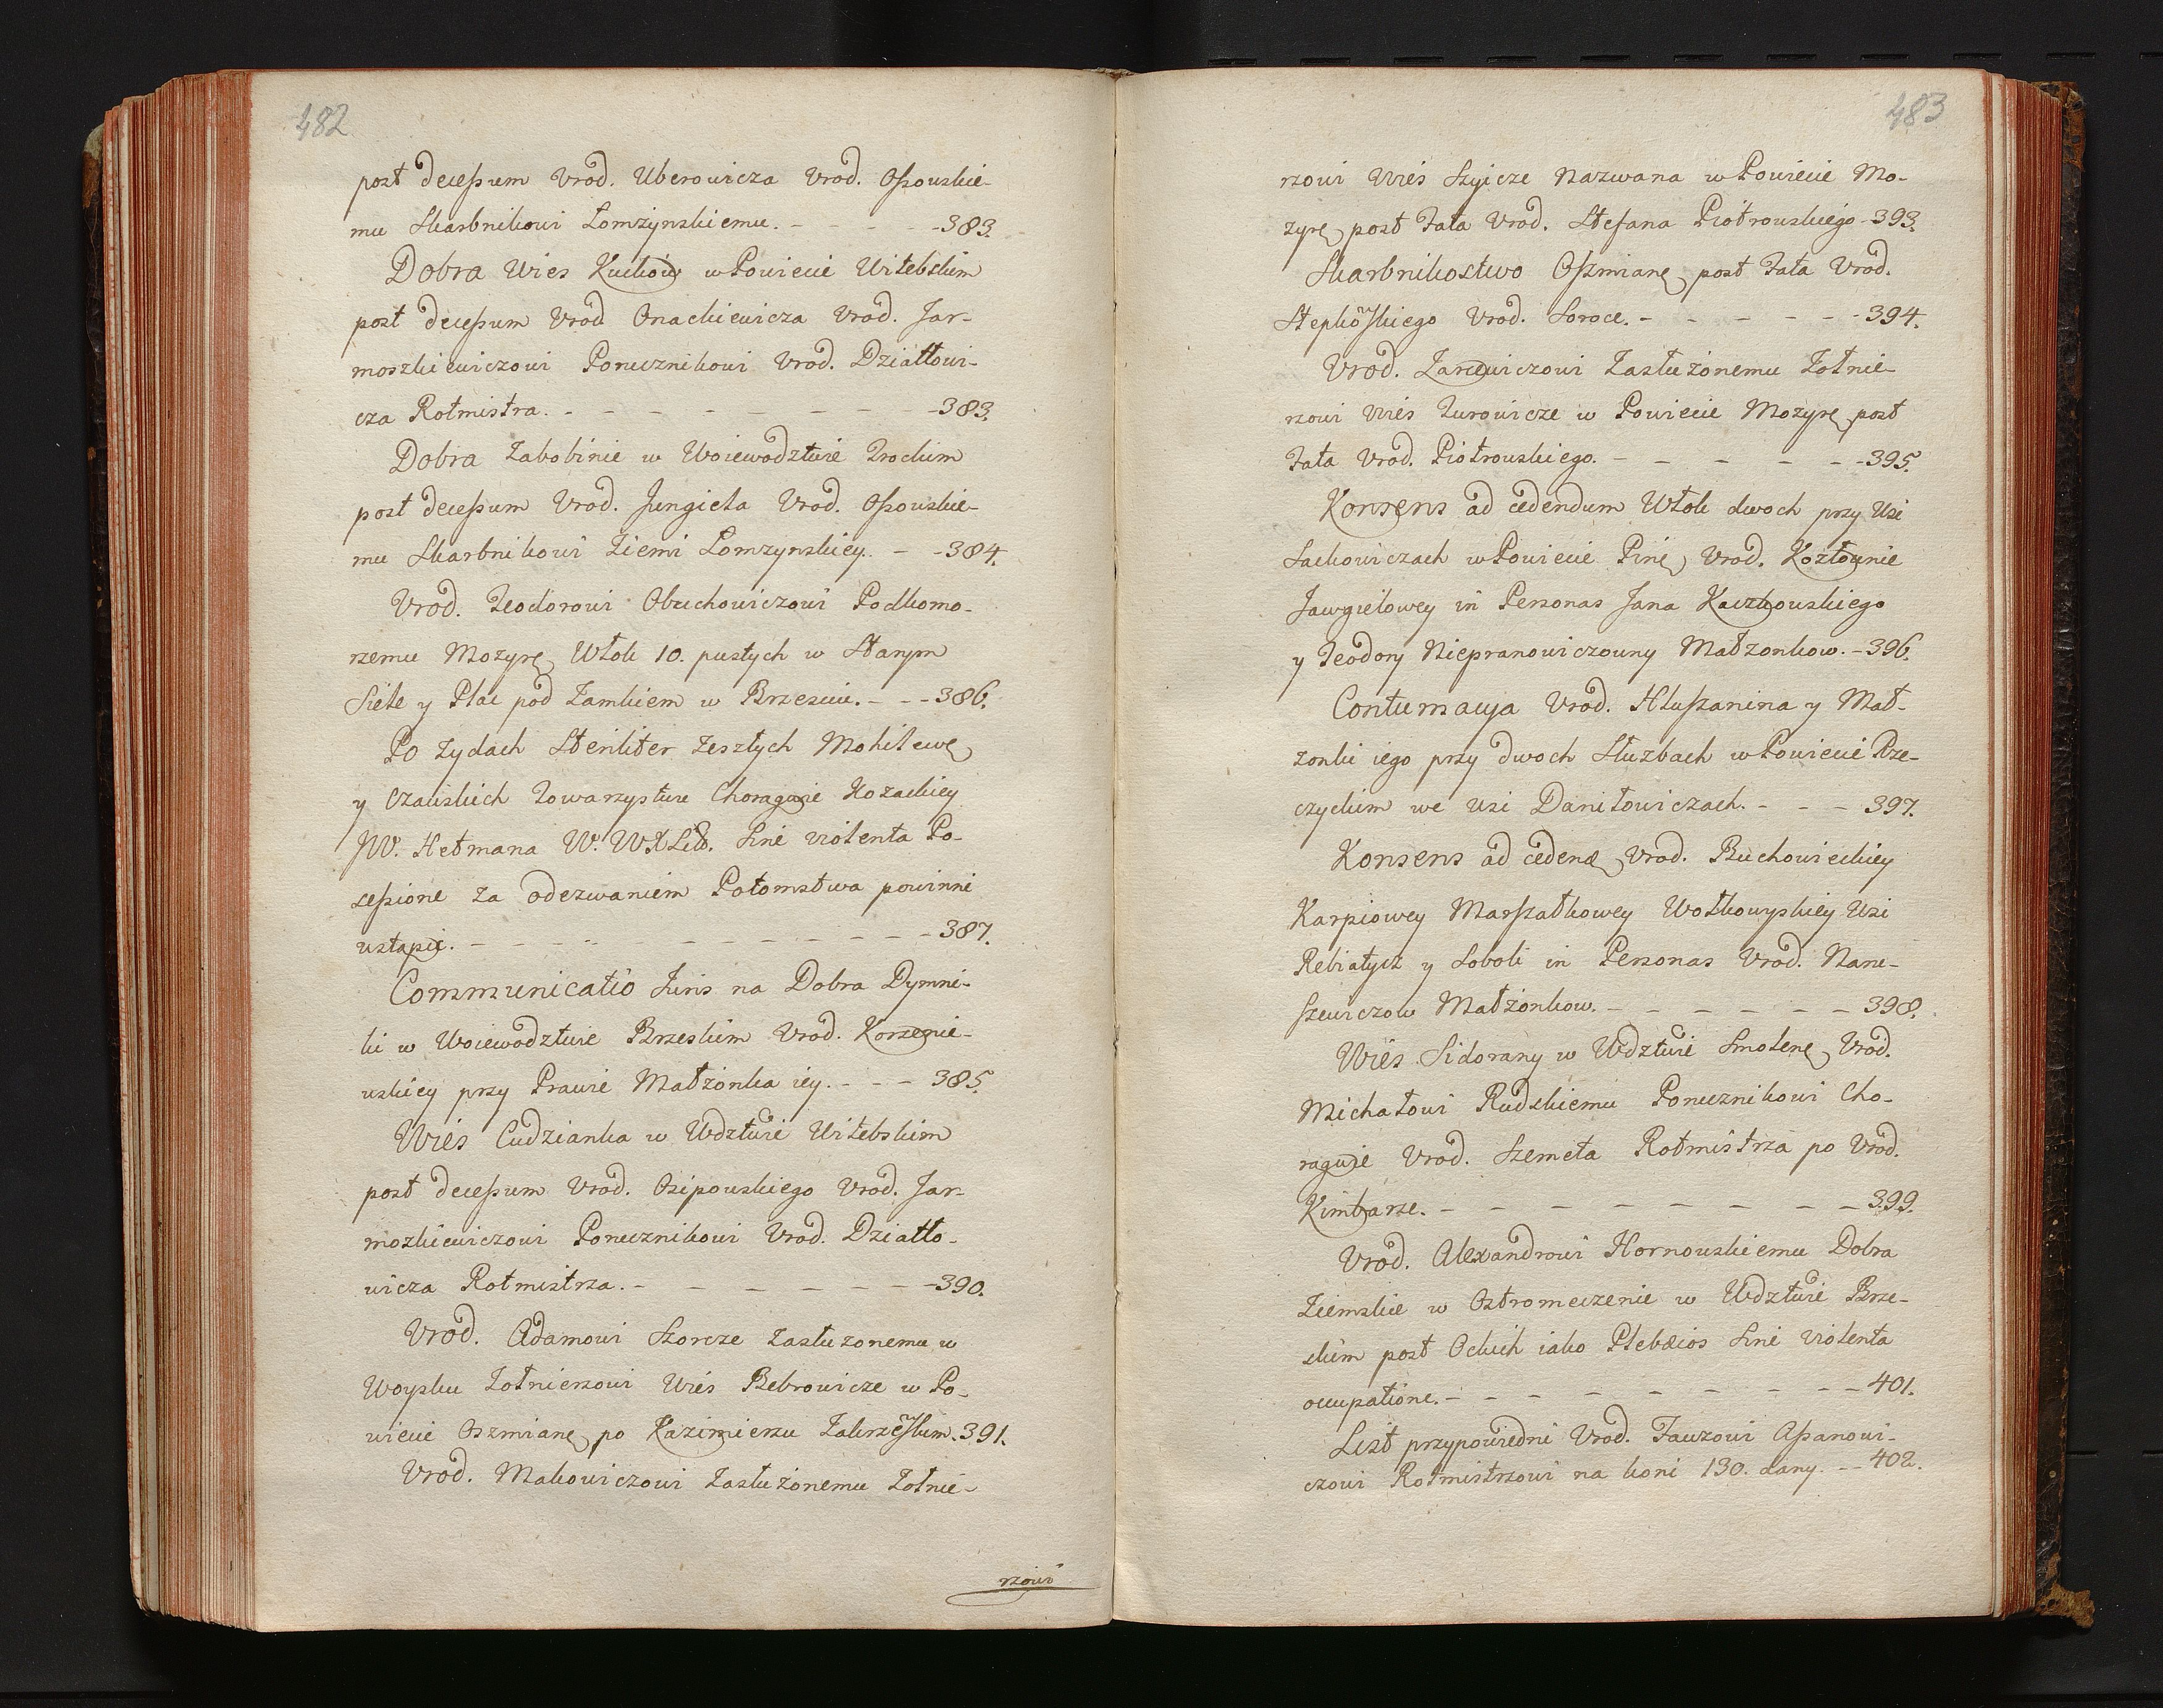 482
post decessum Vrod. Uberowicza Vrod. Ossowskie-
mu Skarbnikowi Łomzynskiemu. - - - - - 383.
Dobra Wies Kuckow w Powiecie Witebskim
post decessum Vrod Onackiewicza Vrod. Jar-
moszkiewiczowi Porucznikowi Vrod. Działłowi-
cza Rotmistra. - - - - - - - - 383.
Dobra Zabobinie w Woiewodztwie Trockim
post decessum Vrod. Jungieła Vrod. Ossowskie-
mu Skarbnikowi Ziemi Łomzynskiey. - - 384.
Vrod. Teodorowi Obuchowiczowi Podkomo-
rzemu Mozyrę Włok 10. pustych w Starym
Siele y Plac pod Zamkiem w Brzesciu. - - - 386.
Po Zydach Steriliter Zeszłych Mohilewę
y Czauskich Towarzystwu Chorągwie Kozackiey
JW. Hetmana W. WXLitt. Sine violenta Po-
sessione za odezwaniem Potomstwa powinni
ustąpic. - - - - - - - - - - - 387.
Communicatio Juris na Dobra Dymni-
ki w Woiewodztwie Brzeskim Vrod. Korzenie-
wskiey przy Prawie Małzonka iey. - - - 385
Wies Cudzianka w Wdztwie Witebskim
post decessum Vrod. Osipowskiego Vrod. Jar-
mozkiewiczowi Porucznikowi Vrod. Działło-
wicza Rotmistrza. - - - - - - - 390.
Vrod. Adamowi Skorcze Zasłuzonemu w
Woysku Zołnierzowi Wies Bebrowicze w Po-
wiecie Oszmianę po Kazimierzu Zakrzeskim. 391.
Vrod. Makowiczowi Zasłużonemu Zołnie-
rzowi
483
rzowi Wies Szyicze Nazwana w Powiecie Mo-
zyrę post Fata Vrod. Stefana Piotrowskiego - 393.
Skarbnikostwo Oszmianę post Fata Vrod.
Stepkoskiego Vrod. Soroce. - - - - - - 394.
Vrod. Zarewiczowi Zasłużonemu Zołnie-
rzowi Wies Turowicze w Powiecie Mozyrę post
Fata Vrod. Piotrowskiego. - - - - - - 395.
Konsens ad cedendum Włok dwoch przy Wsi
Sackowiczach w Powiecie Pinę Vrod. Kozłownie
Jawgiełowey in Personas Jana Kaczkowskiego
y Teodory Niepranowiczowny Małzonkow. - 396.
Contumacya Vrod. Hłuszanina y Mał-
zonki iego przy dwoch Służbach w Powiecie Rze-
czyckim we Wsi Daniłowiczach. - - - 397.
Konsens ad cedend Vrod. Buchowieckiey
Karpiowey Marszałkowey Wołkowyskiey Wsi
Rebiatycz y Soboli in Personas Vrod. Naru-
szewiczow Małżonkow. - - - - - - 398.
Wies Sidorany w Wdztwie Smolenę Vrod.
Michałowi Rudskiemu Porucznikowi Cho-
rągwie Vrod. Szemeta Rotmistrza po Vrod.
Kimbarze. - - - - - - - - 399.
Vrod. Alexandrowi Hornowskiemu Dobra
Ziemskie w Ostromeczenie w Wdztwie Brze-
skim post Ockich iako Plebeios Sine violenta
occupatione. - - - - - - - - 401.
List przypowiedni Vrod. Fauzowi Assanowi-
czowi Rotmistrzowi na koni 130. dany. - - 402.